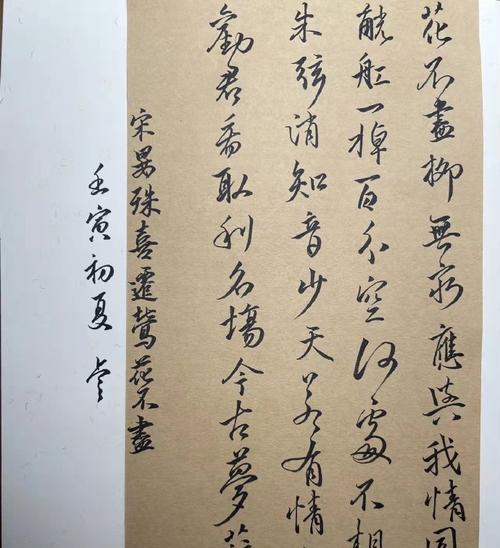 花不盡柳無窮應與我情同
觥舡一棹百分空何處不相
朱弦悄知音少天若有情
勸君看取利名場今古夢茫
宋晏殊喜遷鶯花不盡
壬寅初夏